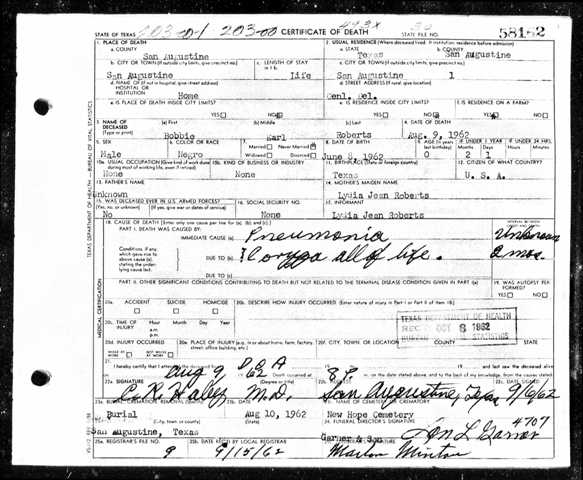 STATE OF TEXAS 203-01 203-00 CERTIFICATE OF DEATH STATE FILE NO. 58182
1. PLACE OF DEATH 2. USUAL RESIDENCE (Where deceased lived. If institution: residence before admission)
a. COUNTY San Augustine a. STATE Texas b. COUNTY San Augustine
b. CITY OR TOWN (If outside city limits, give precinct no.) c. LENGTH OF STAY c. CITY OR TOWN (If outside city limits, give precinct no.)
San Augustine Life San Augustine 1
d. NAME OF (If not in hospital, give street address) HOSPITAL OR INSTITUTION Home d. STREET ADDRESS (If rural, give location) Genl. Del.
e. IS PLACE OF DEATH INSIDE CITY LIMITS? e. IS RESIDENCE INSIDE CITY LIMITS? f. IS RESIDENCE ON A FARM?
YES NO YES NO YES NO
3. NAME OF DECEASED (Type or print) (a) First (b) Middle (c) Last 4. DATE OF DEATH
Bobbie Earl Roberts Aug. 9, 1962
5. SEX 6. COLOR OR RACE 7. Married Never Married Widowed Divorced 8. DATE OF BIRTH 9. AGE (In years last birthday) IF UNDER 1 YEAR IF UNDER 24 HRS.
Male Negro 1962 0 2 1
10a. USUAL OCCUPATION (Give kind of work done during most of working life, even if retired) 10b. KIND OF BUSINESS OR INDUSTRY 11. BIRTHPLACE (State or foreign country) 12. CITIZEN OF WHAT COUNTRY?
None None Texas U. S. A.
13. FATHER'S NAME 14. MOTHER'S MAIDEN NAME
Unknown Lydia Jean Roberts
15. WAS DECEASED EVER IN U.S. ARMED FORCES? (Yes, no, or unknown) (If yes, give war or dates of service) 16. SOCIAL SECURITY NO. 17. INFORMANT
No None Lydia Jean Roberts
18. CAUSE OF DEATH (Enter only one cause per line for (a), (b) and (c))
PART I. DEATH WAS CAUSED BY:
IMMEDIATE CAUSE (a) Pneumonia Unknown
Conditions, if any, which gave rise to above cause (a), stating the underlying cause last. DUE TO (b) Coryza all of life. 2 mos.
DUE TO (c)
PART II. OTHER SIGNIFICANT CONDITIONS CONTRIBUTING TO DEATH BUT NOT RELATED TO THE TERMINAL DISEASE CONDITION GIVEN IN PART I (a) 19. WAS AUTOPSY PERFORMED?
YES NO
20a. ACCIDENT SUICIDE HOMICIDE 20b. DESCRIBE HOW INJURY OCCURRED (Enter nature of injury in Part I or Part II of item 18)
20c. TIME OF INJURY a.m. p.m.
TEXAS DEPARTMENT OF HEALTH
REC OCT 8 1962
BUREAU OF STATISTICS
20d. INJURY OCCURRED WHILE AT WORK NOT WHILE AT WORK 20e. PLACE OF INJURY (e.g. in or about home, farm, factory, street, office building, etc.) 20f. CITY, TOWN, OR LOCATION COUNTY STATE
21. Aug 9 62 Death occurred at 3 P m. on the date stated above, and to the best of my knowledge, from the causes stated.
22a. SIGNATURE (Degree or title) 22b. ADDRESS 22c. DATE SIGNED
C. R. Haley M.D. San Augustine, Texas 9/6/62
23a. BURIAL, CREMATION, REMOVAL 23b. DATE 23c. NAME OF CEMETERY OR CREMATORY
Burial Aug 10, 1962 New Hope Cemetery
23d. LOCATION (City, town, or county) (State) 24. FUNERAL DIRECTOR'S SIGNATURE 4707
San Augustine, Texas Garner & Son
25a. REGISTRAR'S FILE NO. 25b. DATE REC'D BY LOCAL REGISTRAR
9 9/15/62 Marlon Minton
TEXAS DEPARTMENT OF HEALTH — BUREAU OF VITAL STATISTICS
MEDICAL CERTIFICATION